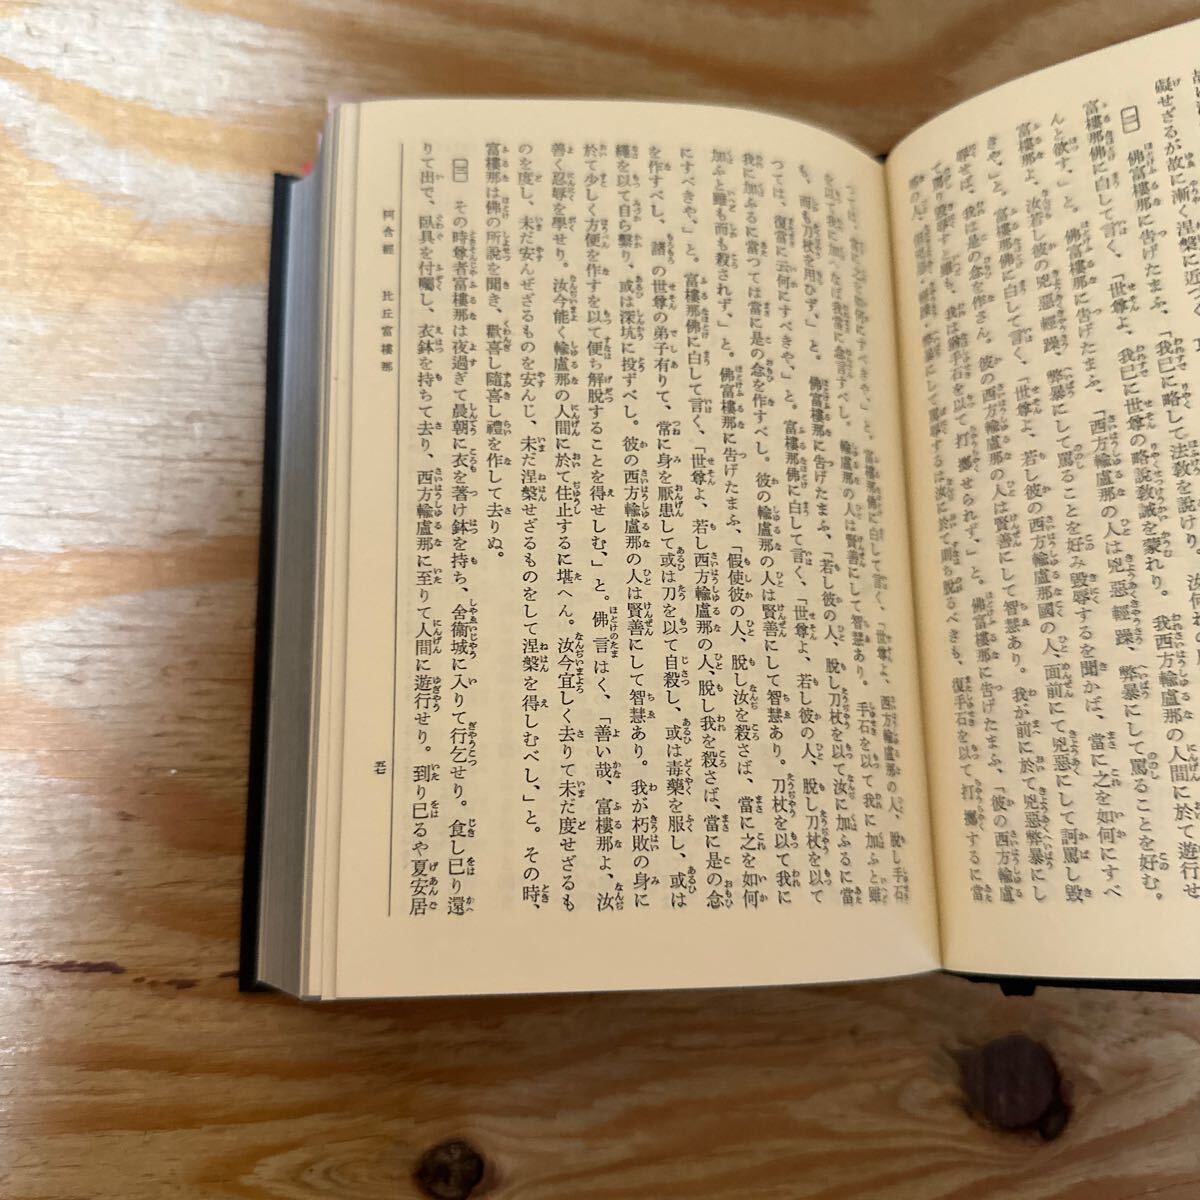 礙せざるが故に漸く涅槃に近づく。
富樓那佛に告げたまふ、「我已に略して法教を說けり、汝何れ
富樓那佛に白して言く、「世尊よ、我已に世尊の略說教誡を蒙れり。我西方輸盧那の人間に於て遊行せ
んと欲す。」と。佛富樓那に告げたまふ、「西方輸盧那の人は兇惡輕躁、弊暴にして罵ることを好む。
富樓那よ、汝若し彼の兇惡輕躁、弊暴にして罵ることを好み毀辱するを聞かば、當に之を如何にすべ
きや。」と。富樓那佛に白して言く、「世尊よ、若し彼の西方輸盧那國の人、面前にて兇惡にして訶罵し毀
辱せば、我は是の念を作さん。彼の西方輸盧那の人は賢善にして智慧あり。我が前に於て兇惡弊暴にし
て罵り毀辱すと雖も、我は猶手石を以て打擲せられず。」と。佛富樓那に告げたまふ、「彼の西方輸盧
つては、當に之を如何にすべきや。」と。富樓那佛に白して言く、「世尊よ、西方輸盧那の人、脫し手石
を以て我に加へなば我當に念言すべし。輸盧那の人は賢善にして智慧あり。手石を以て我に加ふと雖
も、而も刀杖を用ひず。」と。佛富樓那に告げたまふ、「若し彼の人、脫し刀杖を以て汝に加ふるに當
つては、復當に云何にすべきや。」と。富樓那佛に白して言く、「世尊よ、若し彼の人、脫し刀杖を以て
我に加ふるに當つては當に是の念を作すべし。彼の輸盧那の人は賢善にして智慧あり。刀杖を以て我に
加ふと雖も而も殺されず。」と。佛富樓那に告げたまふ、「假使彼の人、脫し汝を殺さば、當に之を如何
にすべきや。」と。富樓那佛に白して言く、「世尊よ、若し西方輸盧那の人、脫し我を殺さば、當に是の念
を作すべし。諸の世尊の弟子有りて、常に身を厭患して或は刀を以て自殺し、或は毒藥を服し、或は
繩を以て自ら繫り、或は深坑に投ずべし。彼の西方輸盧那の人は賢善にして智慧あり。我が朽敗の身に
於て少しく方便を作すを以て便ち解脫することを得せしむ。」と。佛言はく、「善い哉、富樓那よ、汝
善く忍辱を學せり。汝今能く輸盧那の人間に於て住止するに堪へん。汝今宜しく去りて未だ度せざるも
のを度し、未だ安んぜざるものを安んじ、未だ涅槃せざるものをして涅槃を得しむべし。」と。その時、
富樓那は佛の所說を聞き、歡喜し隨喜し禮を作して去りぬ。
〔三〕その時尊者富樓那は夜過ぎて晨朝に衣を著け鉢を持ち、舍衞城に入りて行乞せり。食し已り還
りて出で、臥具を付囑し、衣鉢を持ちて去り、西方輸盧那に至りて人間に遊行せり。到り已るや夏安居
阿含經　比丘富樓那
五七